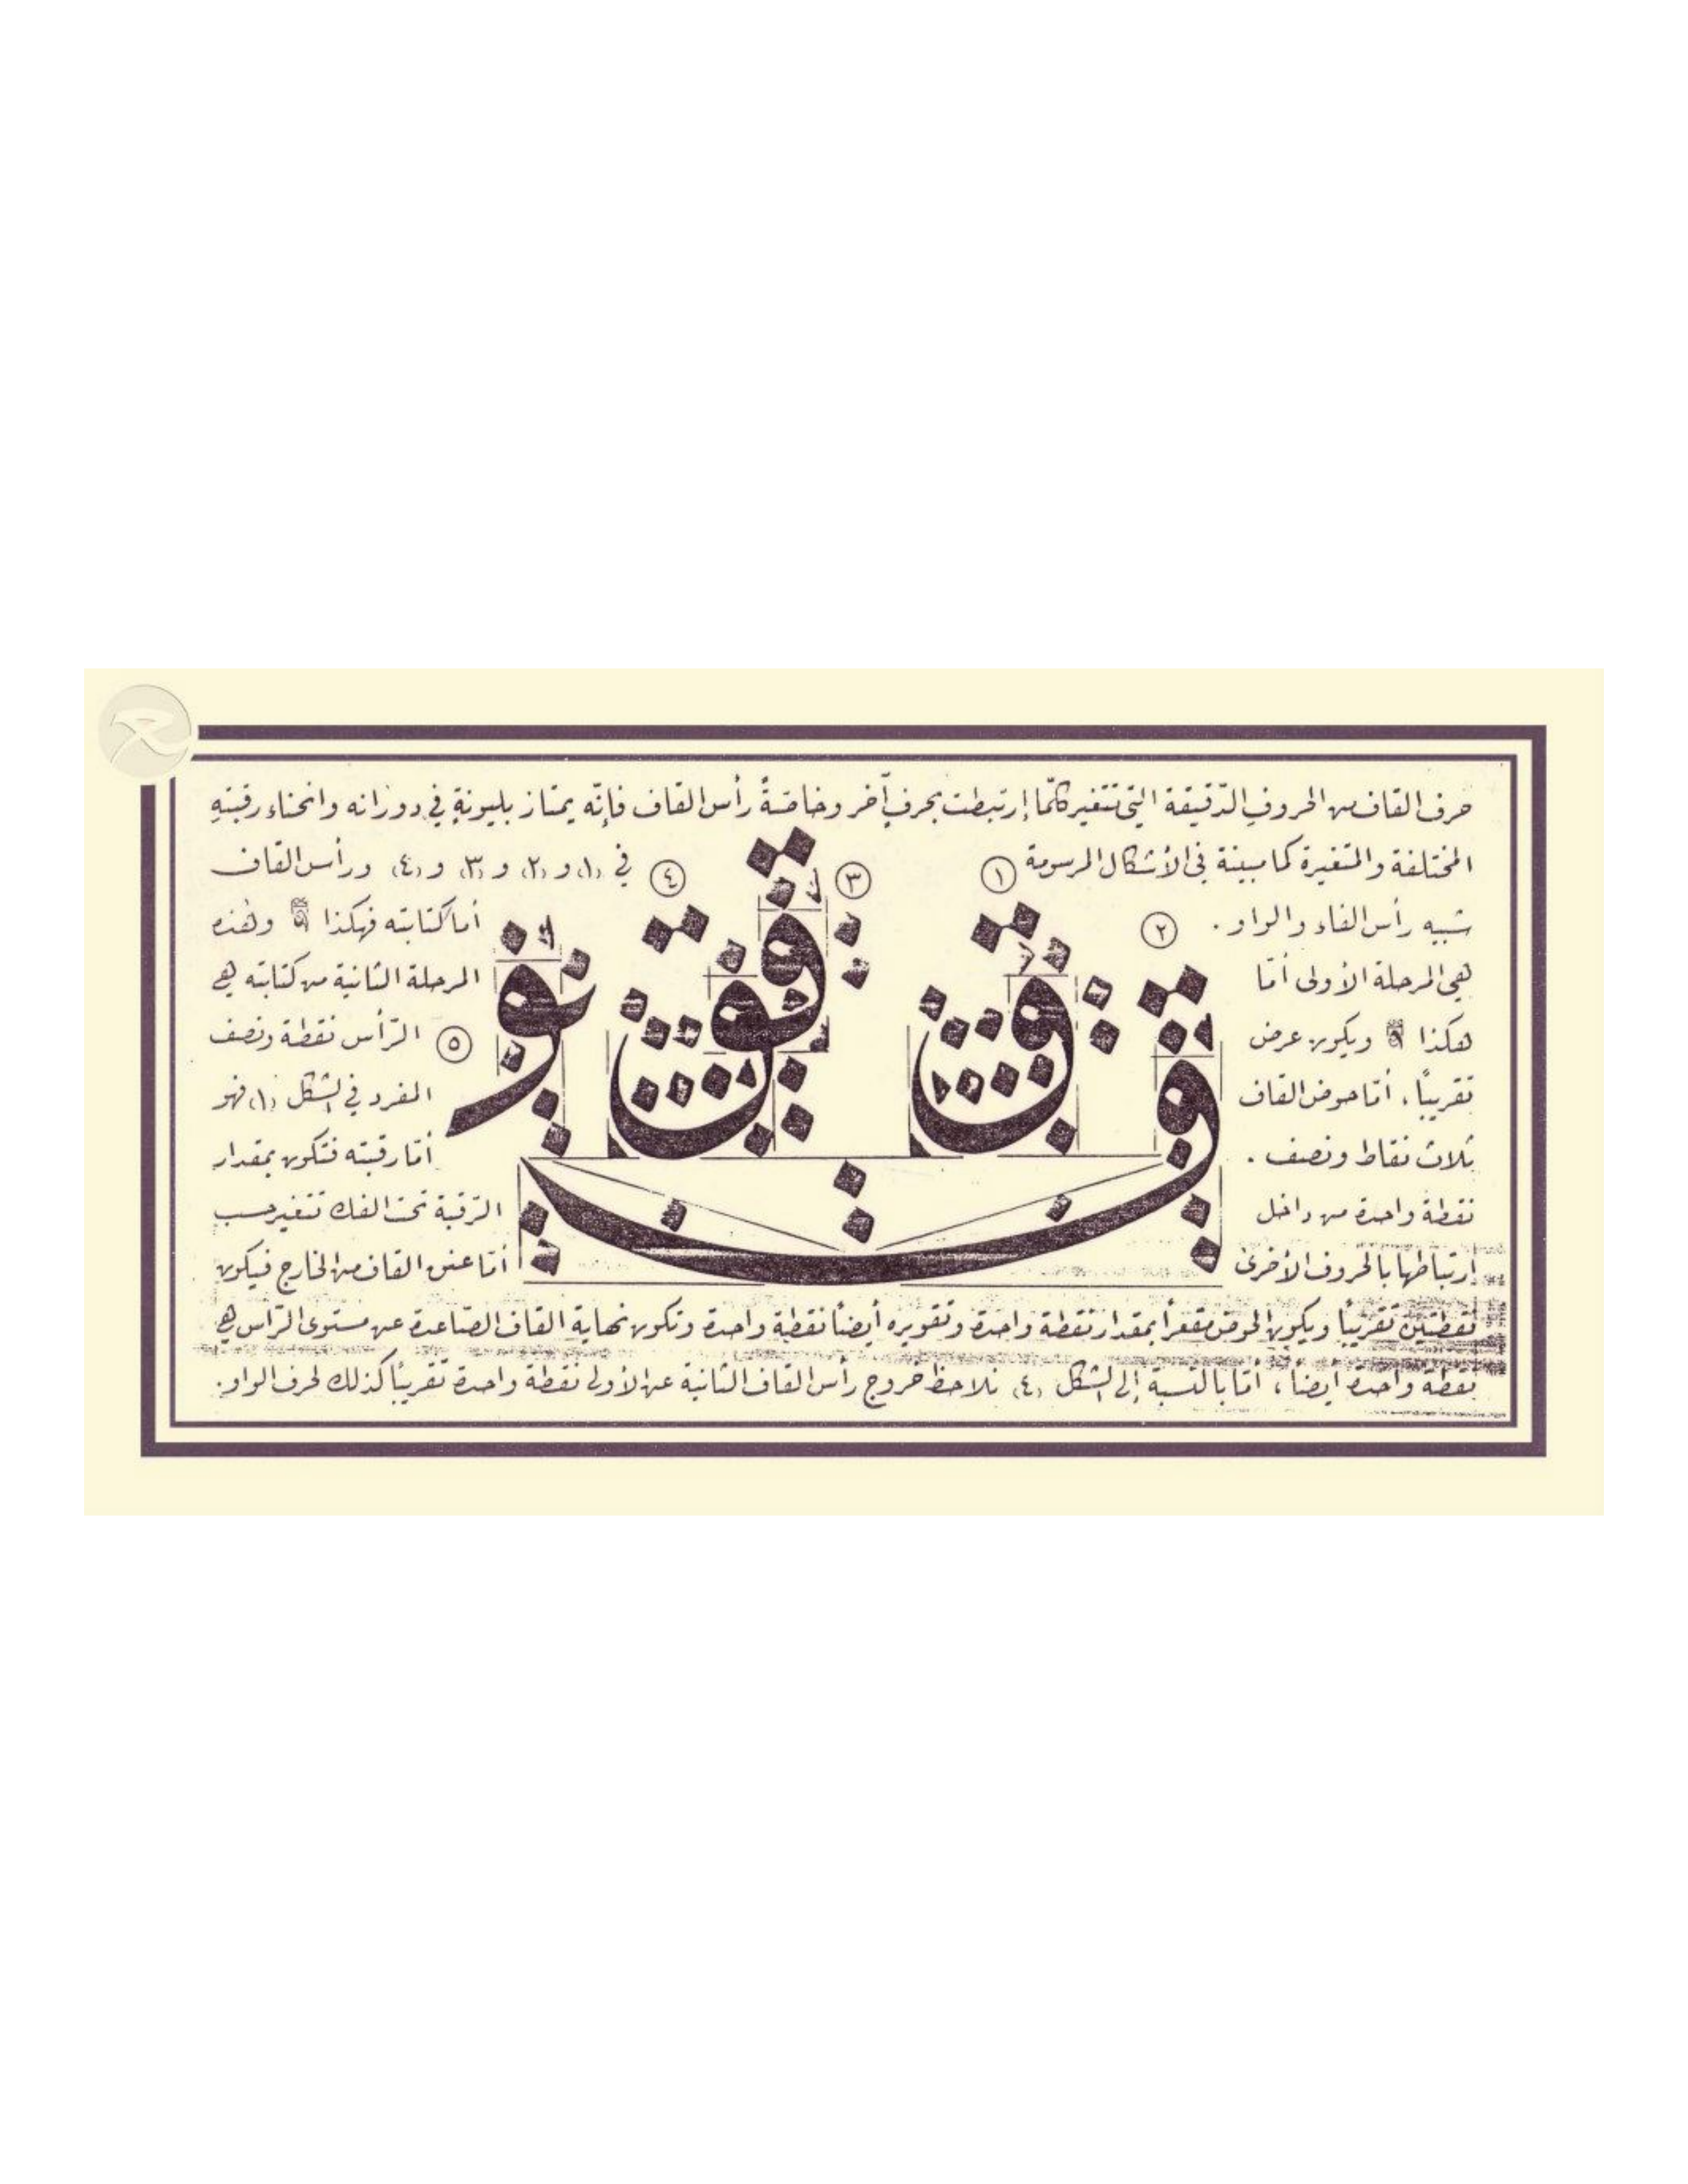 حرف القاف من الحروف الدّقيقة التي تتغير كلّما إرتبطت بحرفٍ آخر وخاصّةً رأس القاف فإنّه يمتاز بليونةٍ في دورانه وانحناء رقبتهِ
المختلفة والمتغيرة كما مبينة في الأشكال المرسومة ١ ٣ ٤ في (١) و (٢) و (٣) و (٤) ورأس القاف
شبيه رأس الفاء والواو . ٢ أما كتابته فهكذا وهذه
هي المرحلة الأولى أمّا المرحلة الثانية من كتابته هي
هكذا ويكون عرض ٥ الرّأس نقطة ونصف
تقريباً ، أمّا حوض القاف المفرد في الشكل (١) فهو
ثلاث نقاط ونصف . أمّا رقبته فتكون بمقدار
نقطة واحدة من داخل الرّقبة تحت الفك تتغير حسب
إرتباطها بالحروف الأخرى أمّا عنق القاف من الخارج فيكون
نقطتين تقريباً ويكون الحوض مقعراً بمقدار نقطة واحدة وتقويره أيضاً نقطة واحدة وتكون نهاية القاف الصّاعدة عن مستوى الرّأس هي
نقطة واحدة أيضاً ، أمّا بالنّسبة إلى الشكل (٤) نلاحظ خروج رأس القاف الثانية عن الأولى نقطة واحدة تقريباً كذلك لحرف الواو .